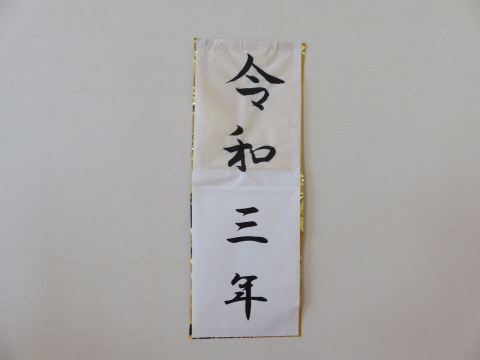 令和三年